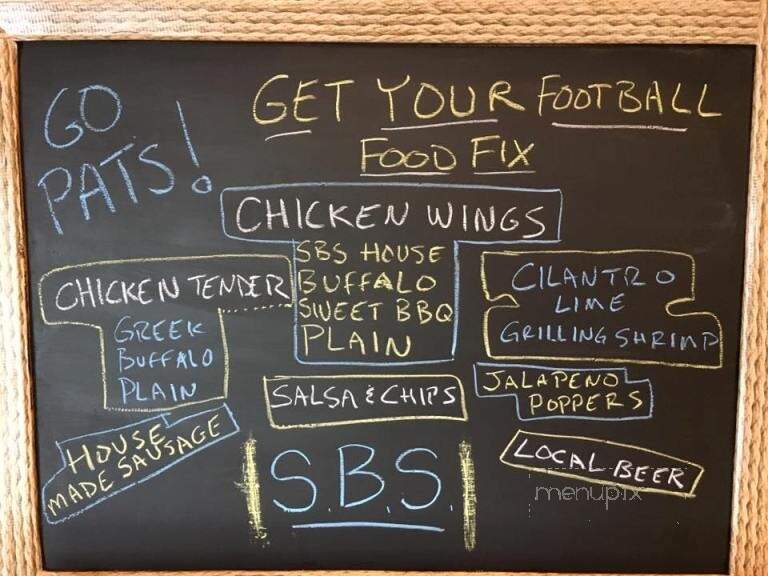 GO
PATS!
GET YOUR FOOTBALL
FOOD FIX
CHICKEN WINGS
SBS HOUSE
BUFFALO
SWEET BBQ
PLAIN
CHICKEN TENDER
GREEK
BUFFALO
PLAIN
CILANTRO
LIME
GRILLING SHRIMP
SALSA & CHIPS
JALAPENO
POPPERS
HOUSE
MADE SAUSAGE
S.B.S.
LOCAL BEER
menupix